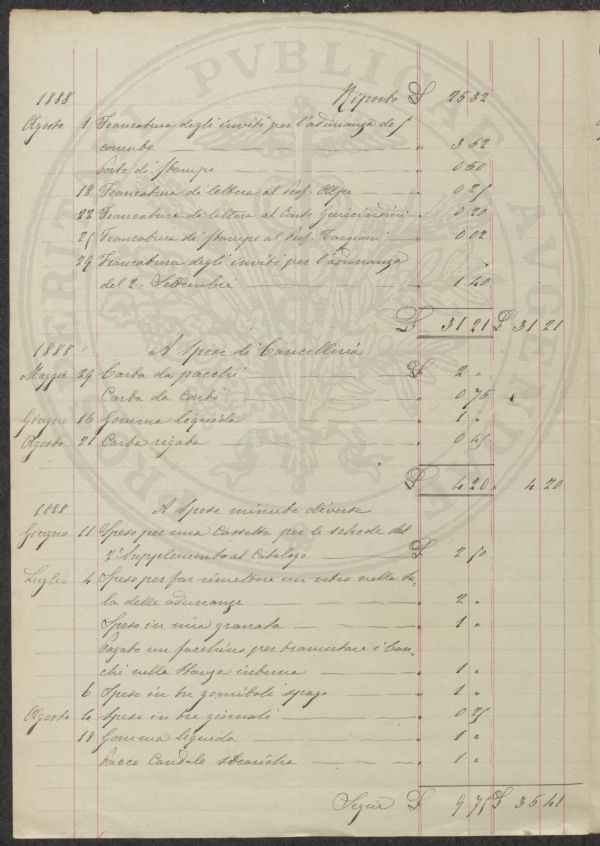 PROSPERITATI PVBLICAE AVGENDAE
1888 Riporto £ 25 32
Agosto 1 Francatura degli inviti per l'adunanza del
corrente — " 3 52
Porto di stampe — " 0 50
18 Francatura di lettera al Prof. — " 0 25
22 Francatura di lettera al Conte Guicciardini " 0 20
25 Francatura di stampe al Prof. Targioni — " 0 02
29 Francatura degli inviti per l'adunanza
del 2 Settembre — " 1 40
£ 31 21 £ 31 21
1888 A Spese di Cancelleria
Maggio 29 Carta da pacchi — £ 2 "
Carta da conti — " 0 75
Giugno 16 Gomma liquida — " 1 "
Agosto 21 Carta rigata — " 0 45
£ 4 20 " 4 20
1888 A Spese minute diverse
Giugno 11 Speso per una Cassetta per le schede del
2° Supplemento al Catalogo — £ 2 50
Luglio 4 Speso per far rimettere un vetro nella Sa-
la delle adunanze — " 2 "
Speso in una granata — " 1 "
Pagato un facchino per tramutare i ban-
chi nella stanza interna — " 1 "
6 Speso in tre gomitoli spago — " 1 "
Agosto 6 Speso in tre giornali — " 0 25
18 Gomma liquida — " 1 "
Pacco Candele steariche — " 1 "
Segue £ 9 75 £ 35 41